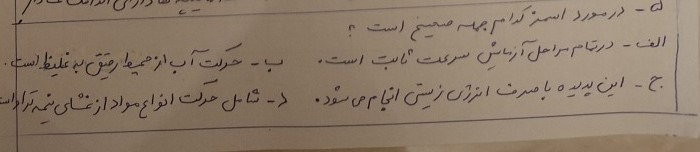 ۵- در مورد اسمز کدام جمله صحیح است؟
الف- در تمام مراحل آزمایش سرعت ثابت است. ب- حرکت آب از محیط رقیق به غلیظ است.
ج- این پدیده با صرف انرژی زیستی انجام می شود. د- شامل حرکت انواع مواد از غشای نیمه تراوا